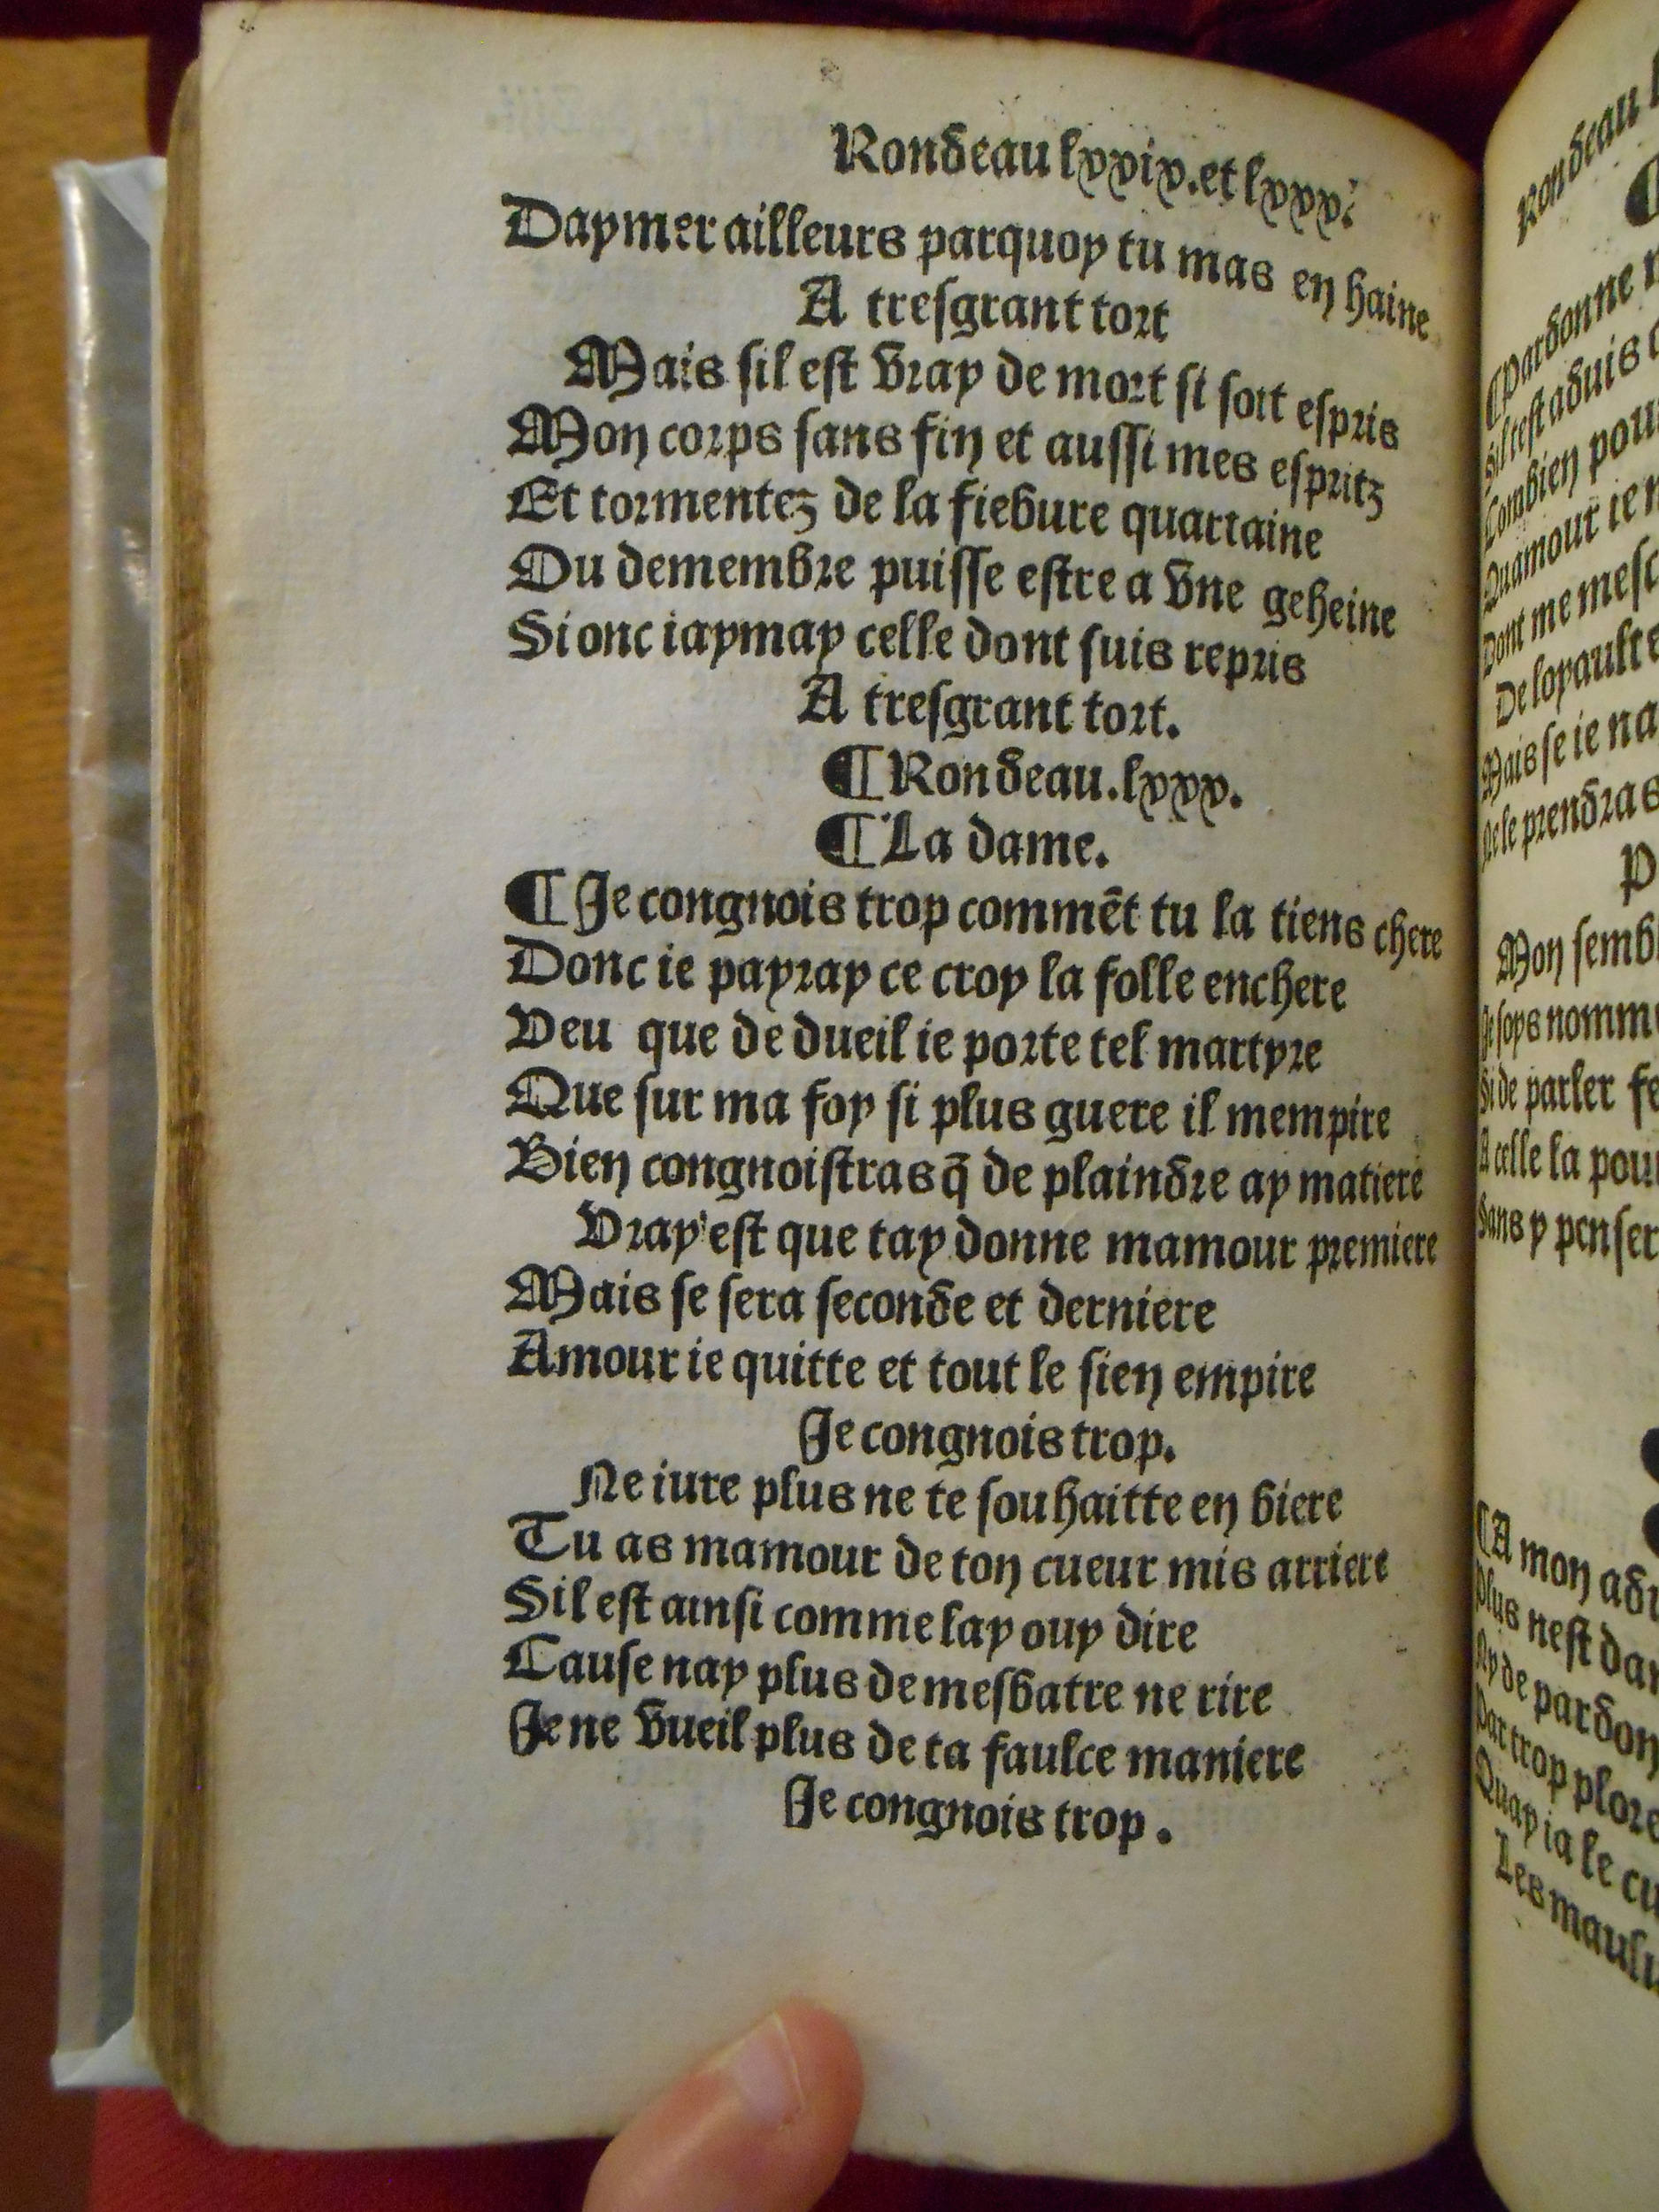 Rondeau lxxix. et lxxx.
Daymer ailleurs parquoy tu mas en haine
A tresgrant tort
Mais sil est vray de mort si soit espris
Mon corps sans fin et aussi mes espritz
Et tormentez de la fiebure quartaine
Ou demembre puisse estre a vne geheine
Si onc iaymay celle dont suis repris
A tresgrant tort.
¶ Rondeau. lxxx.
¶ La dame.
¶ Je congnois trop commẽt tu la tiens chere
Donc ie payray ce croy la folle enchere
Veu que de dueil ie porte tel martyre
Que sur ma foy si plus guere il mempire
Bien congnoistras q̃ de plaindre ay matiere
Vray est que tay donne mamour premiere
Mais se sera seconde et derniere
Amour ie quitte et tout le sien empire
Je congnois trop.
Ne iure plus ne te souhaitte en biere
Tu as mamour de ton cueur mis arriere
Sil est ainsi comme lay ouy dire
Cause nay plus de mesbatre ne rire
Je ne vueil plus de ta faulce maniere
Je congnois trop.
Rondeau
Pardonne
Sil test aduis
Combien
Quamour
Dont me
De loyaulte
Mais se ie
Ne le prendras
Mon
Je soys
Si de parler
A celle la
Sans y penser
¶ A mon
Plus nest
Ny de
Par trop
Quay ia le
Les